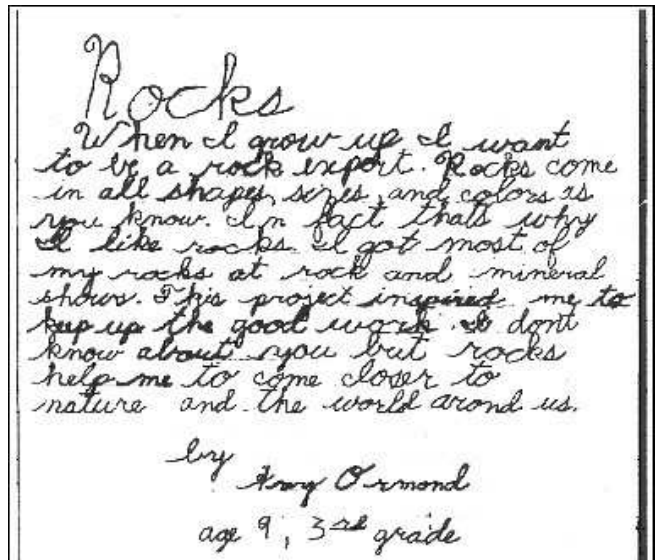 Rocks
When I grow up I want
to be a rock export. Rocks come
in all shapes, sizes, and colors as
you know. In fact thats why
I like rocks. I got most of
my rocks at rock and mineral
shows. This project inspired me to
keep up the good work. I dont
know about you but rocks
help me to come closer to
nature and the world arond us.
by
Ormond
age 9, 3rd grade